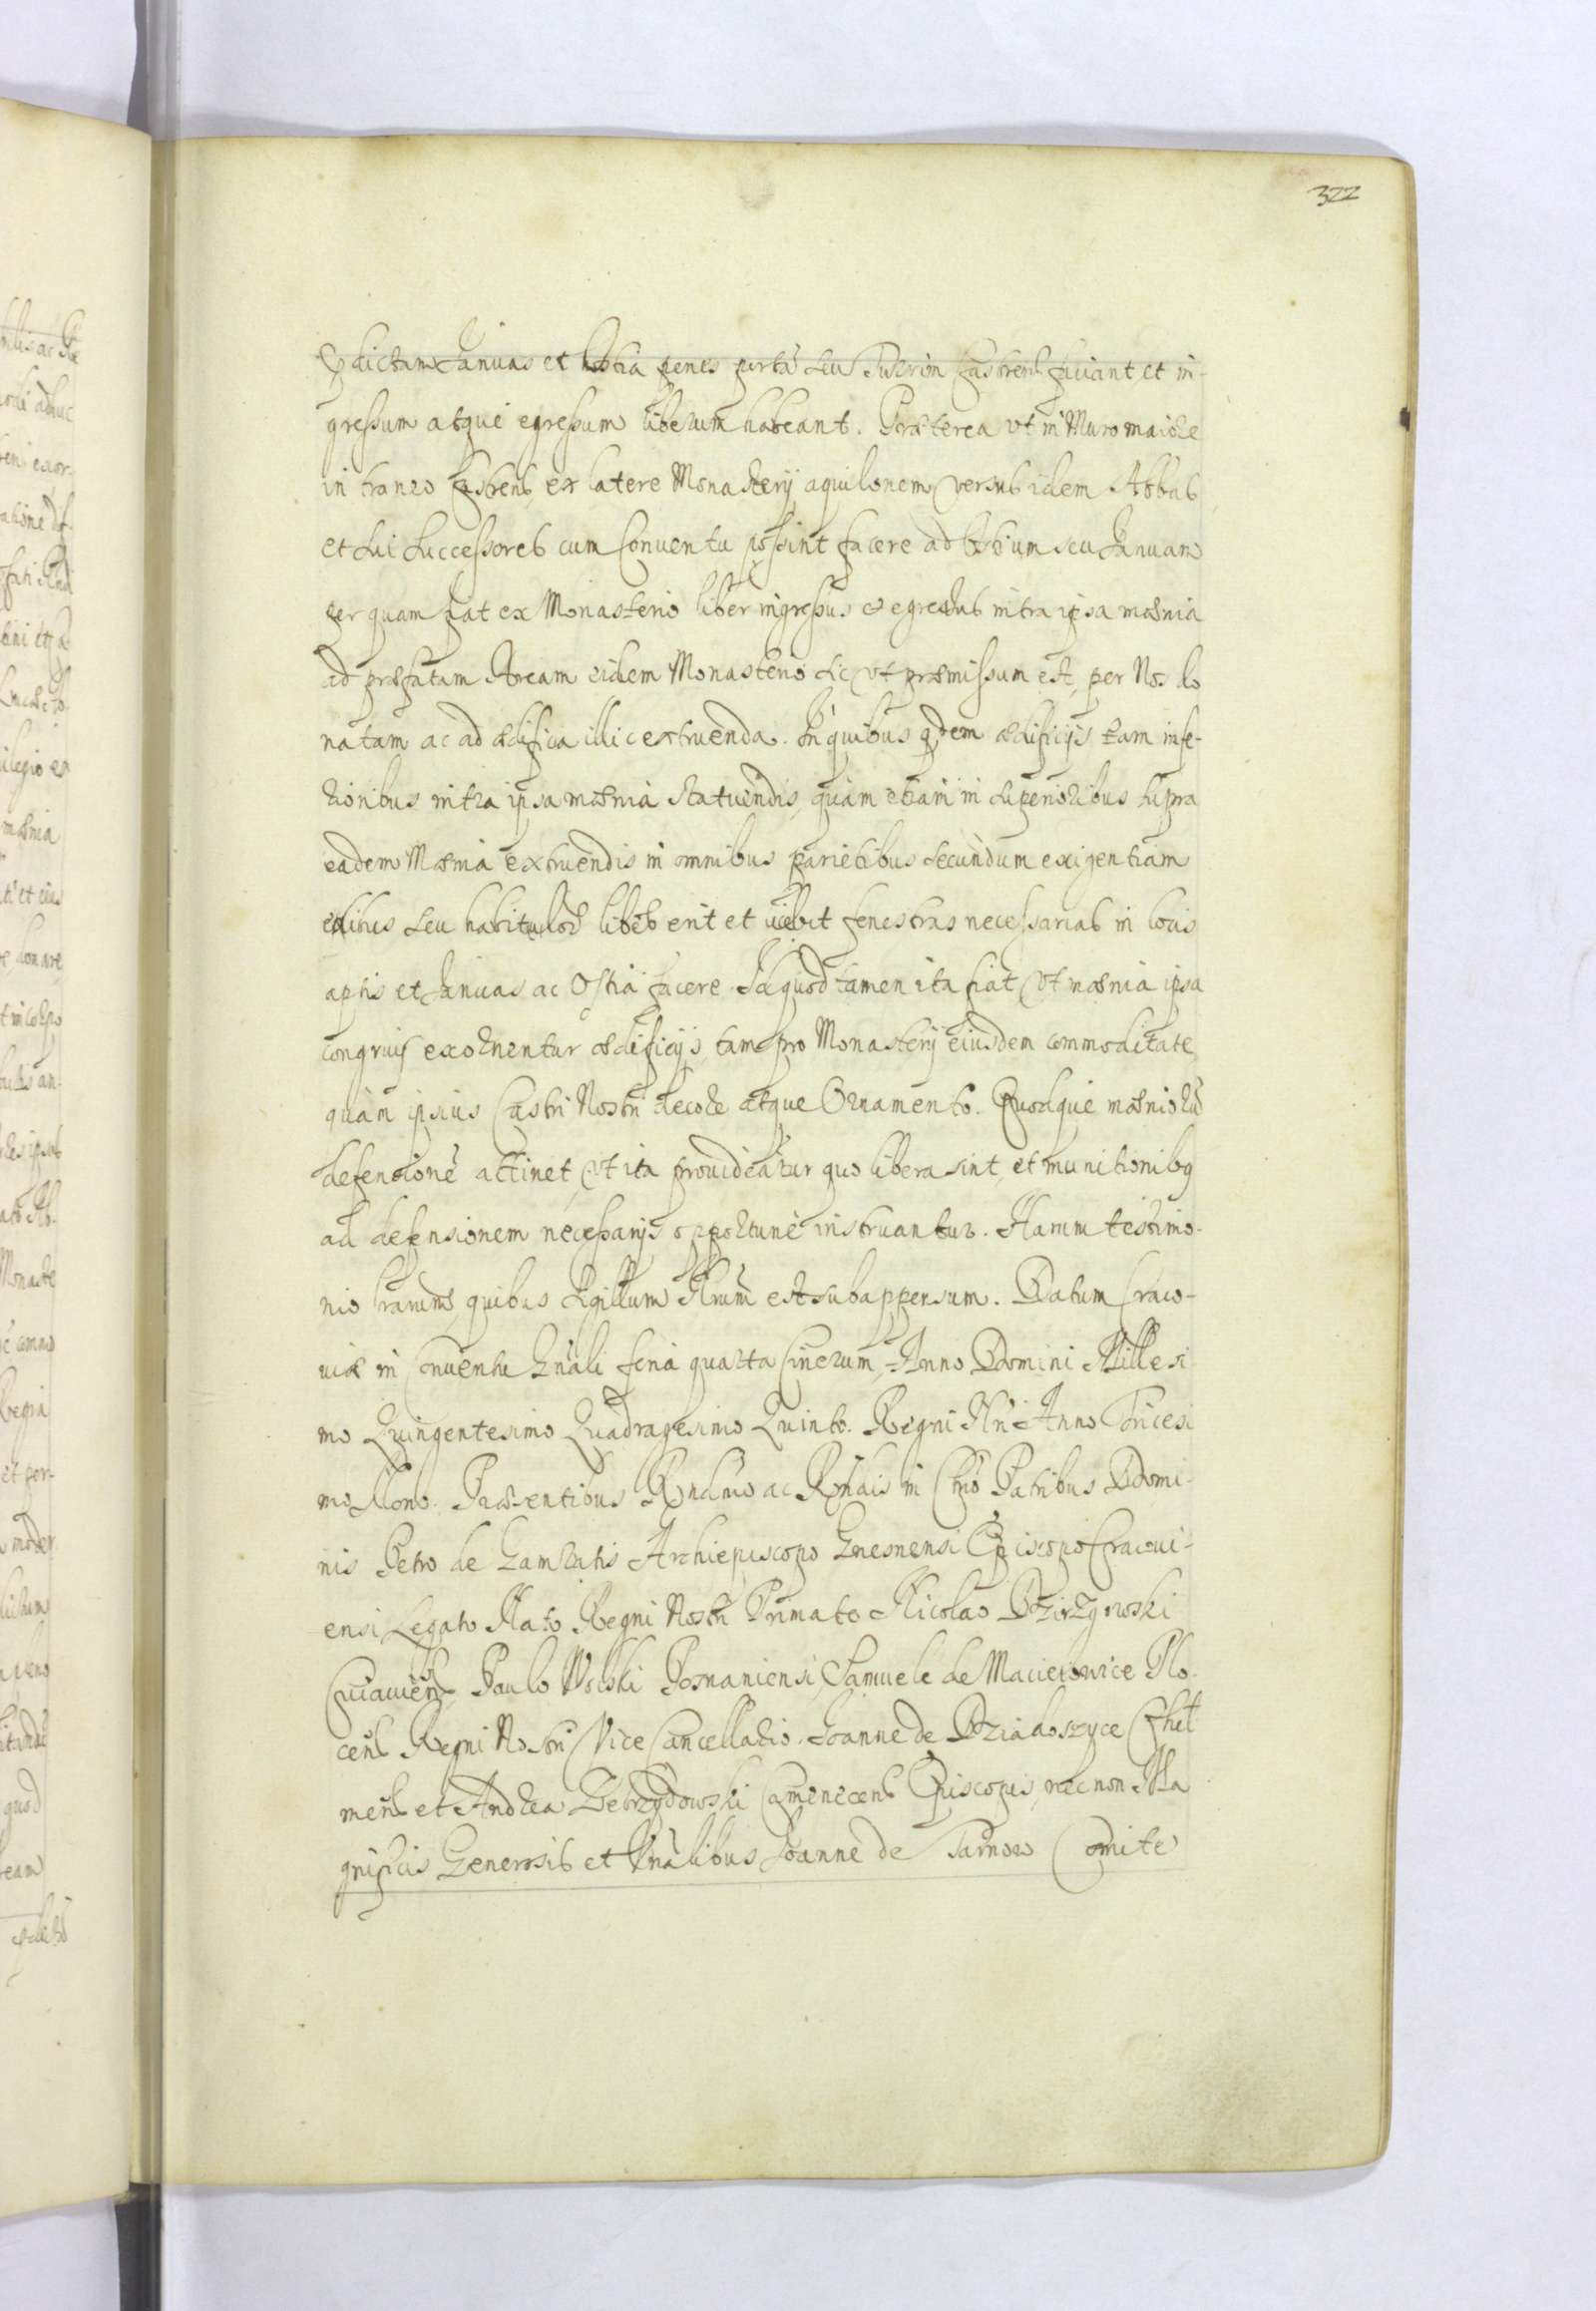 322
dictam Januas et hostia penes portã seu Turrim Castreñ faciant et in-
gressum atque egressum liberum habeant. Præterea vt in Muro maiore
in Castreñ ex latere Monasterij aquilonem versus idem Abbas
et sui Successores cum Conuentu possint facere ad Ostium seu Januam
per quam fiat ex Monasterio liber ingressus et egressus intra ipsa mœnia
ad præfatam Aream eidem Monasterio sic vt præmissum est, per Nos do
natam ac ad ædificia illic extruenda. In quibus qdem ædificijs tam infe-
rioribus intra ipsa mœnia statuendis, quàm etiam in superioribus supra
eadem Mœnia extruendis in omnibus parietibus secundum exigentiam
seu liberũ erit et licebit fenestras necessarias in locis
aptis et Januas ac Ostia facere. Id quod tamen ita fiat vt mœnia ipsa
congruis exornentur ædificijs, tam pro Monasterij eiusdem commoditate,
quàm ipsius Castri Nostri decore atque Ornamento. Quodque mœniorũ
defensionẽ attinet, vt ita prouideatur quo libera sint, et munitionibq
ad defensionem necessarijs opportunè instruantur. Harum testimo-
nio lrarum, quibus Sigillum Nrum est subappensum. Datum Craco-
uiæ in Conuentu Gnali feria quarta Cinerum, Anno Domini Millesi
mo Quingentesimo Quadragesimo Quinto. Regni Nri Anno Tricesi
mo Nono. Præsentibus Rndmo ac Rndis in Chro Patribus Domi-
nis Petro de Gamratis Archiepiscopo Gnesnensi Episcopo Cracoui-
ensi Legato Nato Regni Nostri Primate Nicolao Dzierzgowski
Cuiauieñ, Paulo Wolski Posnaniensi, Samuele de Macieiowice Plo-
ceñ Regni Nostri Vice Cancellario. Joanne de Dziadoszyce Chel
meñ et Andrea Zebrzydowski Cameneceñ Episcopis, necnon Ma
gnificis Generosis et Joanne de Tarnow Comite